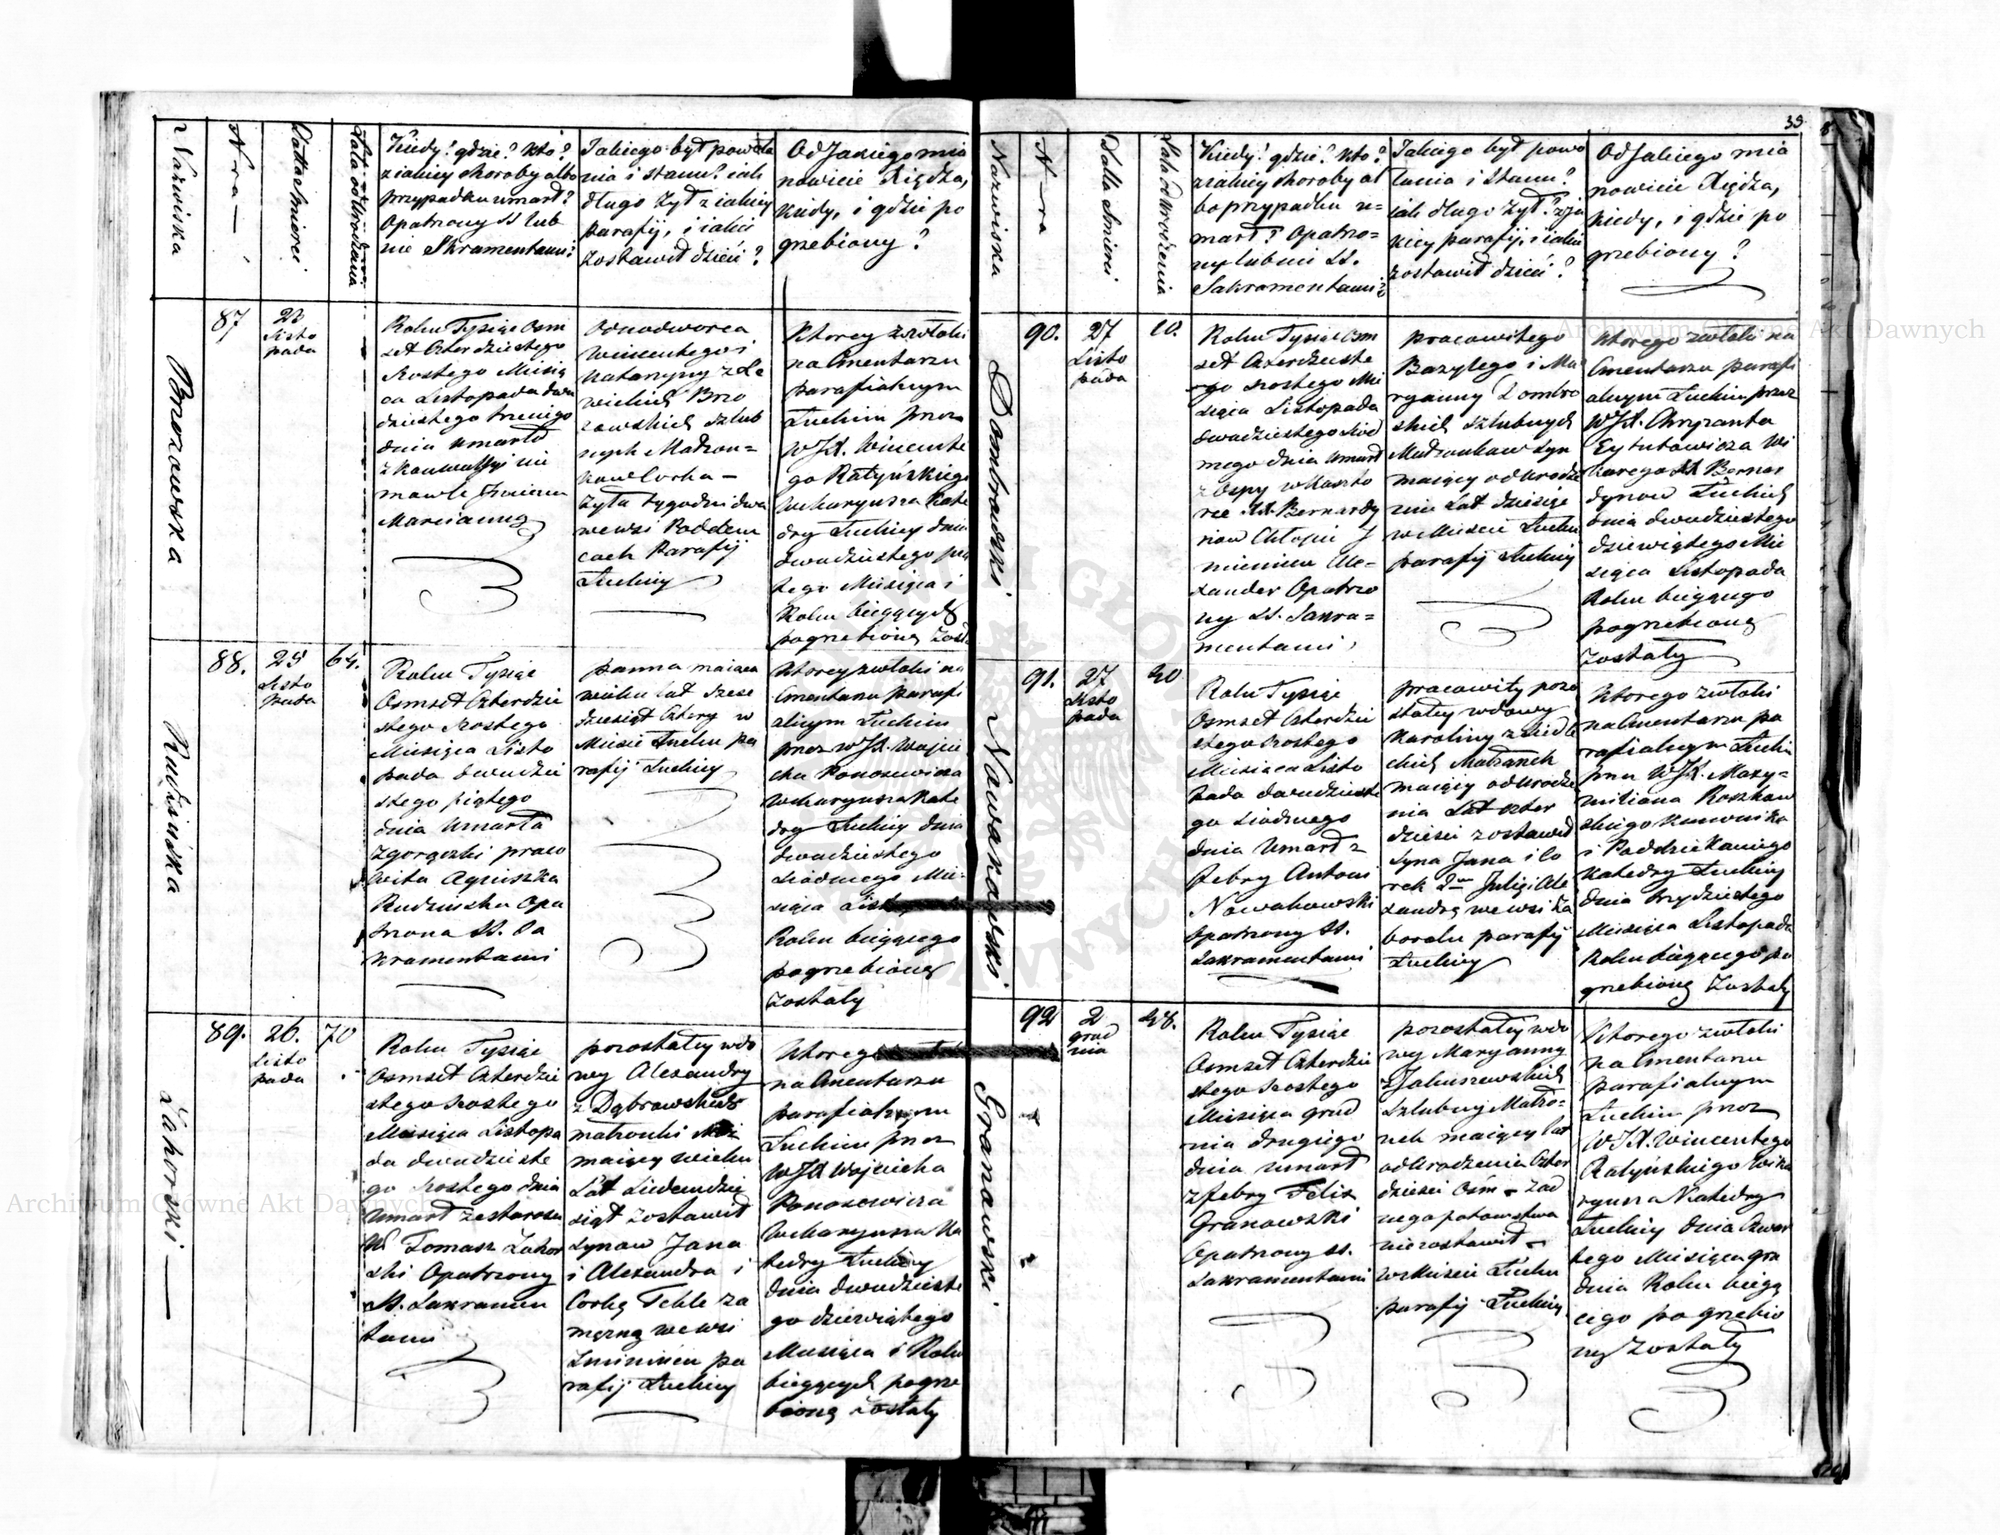 Nazwiska
Nra
Datta Śmierci
Lata od Urodzenia
Kiedy? gdzie? kto?
z iakiey choroby albo
przypadku umarł?
Opatrzony SS lub
nie Sakramentami?
Jakiego był powoła
nia i stanu? iak
długo żył z iakiey
parafij, i iakie
zostawił dzieci?
Od Jakiego mia
nowicie Xiędza,
kiedy, i gdzie po
grzebiony?
Brzozowska
87
23
Listo
pada
Roku Tysiąc Osm
set Czterdziestego
szostego Miesią
ca Listopada dwu
dziestego trzeciego
dnia umarła
mowle Imieniem
Maryanna
Odnodworca
Wincentego i
Katarzyny z Le
wickich Brzo
zowskich szlub
nych Małżon=
kow Corka –
żyła tygodni dwa
we wsi Poddem
cach Parafij
Łuckiey
Ktorey zwłoki
na Cmentarzu
parafialnym
Łuckim przez
WJX. Wincente
go Ratyńskiego
Wikaryusza Kate
dry Łuckiey dnia
dwudziestego pią
tego Miesiąca i
Roku bieżących
pogrzebione zosta
Rudzińska
88.
25
Listo
pada
64.
Roku Tysiąc
Osmset Czterdzie
stego szostego
Miesiąca Listo
pada dwudzie
stego piątego
dnia Umarła
z gorączki praco
wita Agnieszka
Rudzińska Opa
trzona SS. Sa
kramentami
panna maiąca
wieku lat sześć
dziesiąt Cztery w
Mieście Łucku pa
rafij Łuckiey
Ktorey zwłoki na
Cmentarzu parafi
alnym Łuckim
przez WJX. Wojcie
cha Konosewicza
Wikaryusza Kate
dry Łuckiey dnia
dwudziestego
siodmego Mie=
siąca List
Roku bieżącego
pogrzebione
zostały
Zahorski
89.
26.
Listo
pada
70
Roku Tysiąc
Osmset Czterdzie
stego szostego
Miesiąca Listopa
da dwudzieste
go szostego dnia
Umarł ze starosci
W Tomasz Zahor
ski Opatrzony
SS. Sakramen
tami
pozostałey wdo
wy Alexandry
z Dąbrowskich
małżonki
maiący wieku
Lat Siedemdzie
siąt zostawił
Synow Jana
i Alexandra i
Corkę Teklę za
mężną we wsi
pa
rafij Łuckiey
Ktorego
na Cmentarzu
parafialnym
Łuckim przez
WJX Wojciecha
Konosowicza
Wikaryusza Ka
tedry Łuckiey
dnia dwudzieste
go dziewiątego
Miesiąca i Roku
bieżących pogrze
bione zostały
39
Nazwiska
N–ra
Datta Śmierci
Lata od Urodzenia
Kiedy? gdzie? kto?
z iakiey choroby al
bo przypadku u=
marł? Opatrzo=
ny lub nie SS.
Sakramentami?
Jakiego był powo
łania i stanu?
iak długo żył? z ja
kiey parafij, i iakie
zostawił dzieci?
Od Jakiego mia
nowicie Xiędza,
kiedy, i gdzie po
grzebiony?
Dombrowski.
90.
27
Listo
pada
10.
Roku Tysiąc Osm
set Czterdzieste
go szostego Mie
siąca Listopada
dwudziestego siod
mego dnia umarł
z Ospy w klaszto
rze XX. Bernardy
now Chłopiec J
mieniem Ale=
xander Opatrzo
ny SS. Sakra=
mentami,
pracowitego
Bazylego i Ma
ryanny Dombro
skich szlubnych
Małżonkow syn
maiący od Urodze
nia lat dziesięć
w Mieście Łucku
parafij Łuckiey
Ktorego zwłoki na
Cmentarzu parafi
alnym Łuckim przez
WJX. Chryzanta
Eytutowicza Wi
karego XX Bernar
dynow Łuckich
dnia dwudziestego
dziewiątego Mie
siąca Listopada
Roku bieżącego
pogrzebione
zostały
Nowakowski.
91.
27
Listo
pada
40
Roku Tysiąc
Osmset Czterdzie
stego szostego
Miesiąca Listo
pada dwudzieste
go siodmego
dnia Umarł z
febry Antoni
Nowakowski
Opatrzony SS.
Sakramentami
pracowity pozo
stałey wdowy
Karoliny z
Małżonek
maiący od Urodze
nia Lat czter
dzieści zostawił
Syna Jana i Co
rek 2ie Julię i Ale
xandrę we wsi Za
borolu parafij
Łuckiey
Ktorego zwłoki
na Cmentarzu pa
rafialnym Łucki
przez WJX. Maxy=
miliana Roszkow
skiego Kanonika
i Poddziekaniego
Katedry Łuckiey
dnia trzydziestego
Miesiąca Listopada
Roku bieżącego po
grzebione zostały
Granowski.
92
2
grud
nia
48.
Roku Tysiąc
Osmset Czterdzie
stego szostego
Miesiąca grud
nia drugiego
dnia umarł
z febry Felix
Granowski
Opatrzony SS.
Sakramentami
pozostałey wdo
wy Maryanny
z Januszewskich
szlubney Małżo=
nek maiący lat
od Urodzenia Czter
dzieści Ośm – żad
nego potomstwa
nie zostawił –
w Mieście Łucku
parafij Łuckiey
Ktorego zwłoki
na Cmentarzu
parafialnym
Łuckim przez
WJX. Wincentego
Ratyńskiego Wika
ryusza Katedry
Łuckiey dnia Czwar
tego Miesiąca gru
dnia Roku bieżą
cego pogrzebio
ny zostały
Archiwum Główne Akt Dawnych
Archiwum Główne Akt Dawnych